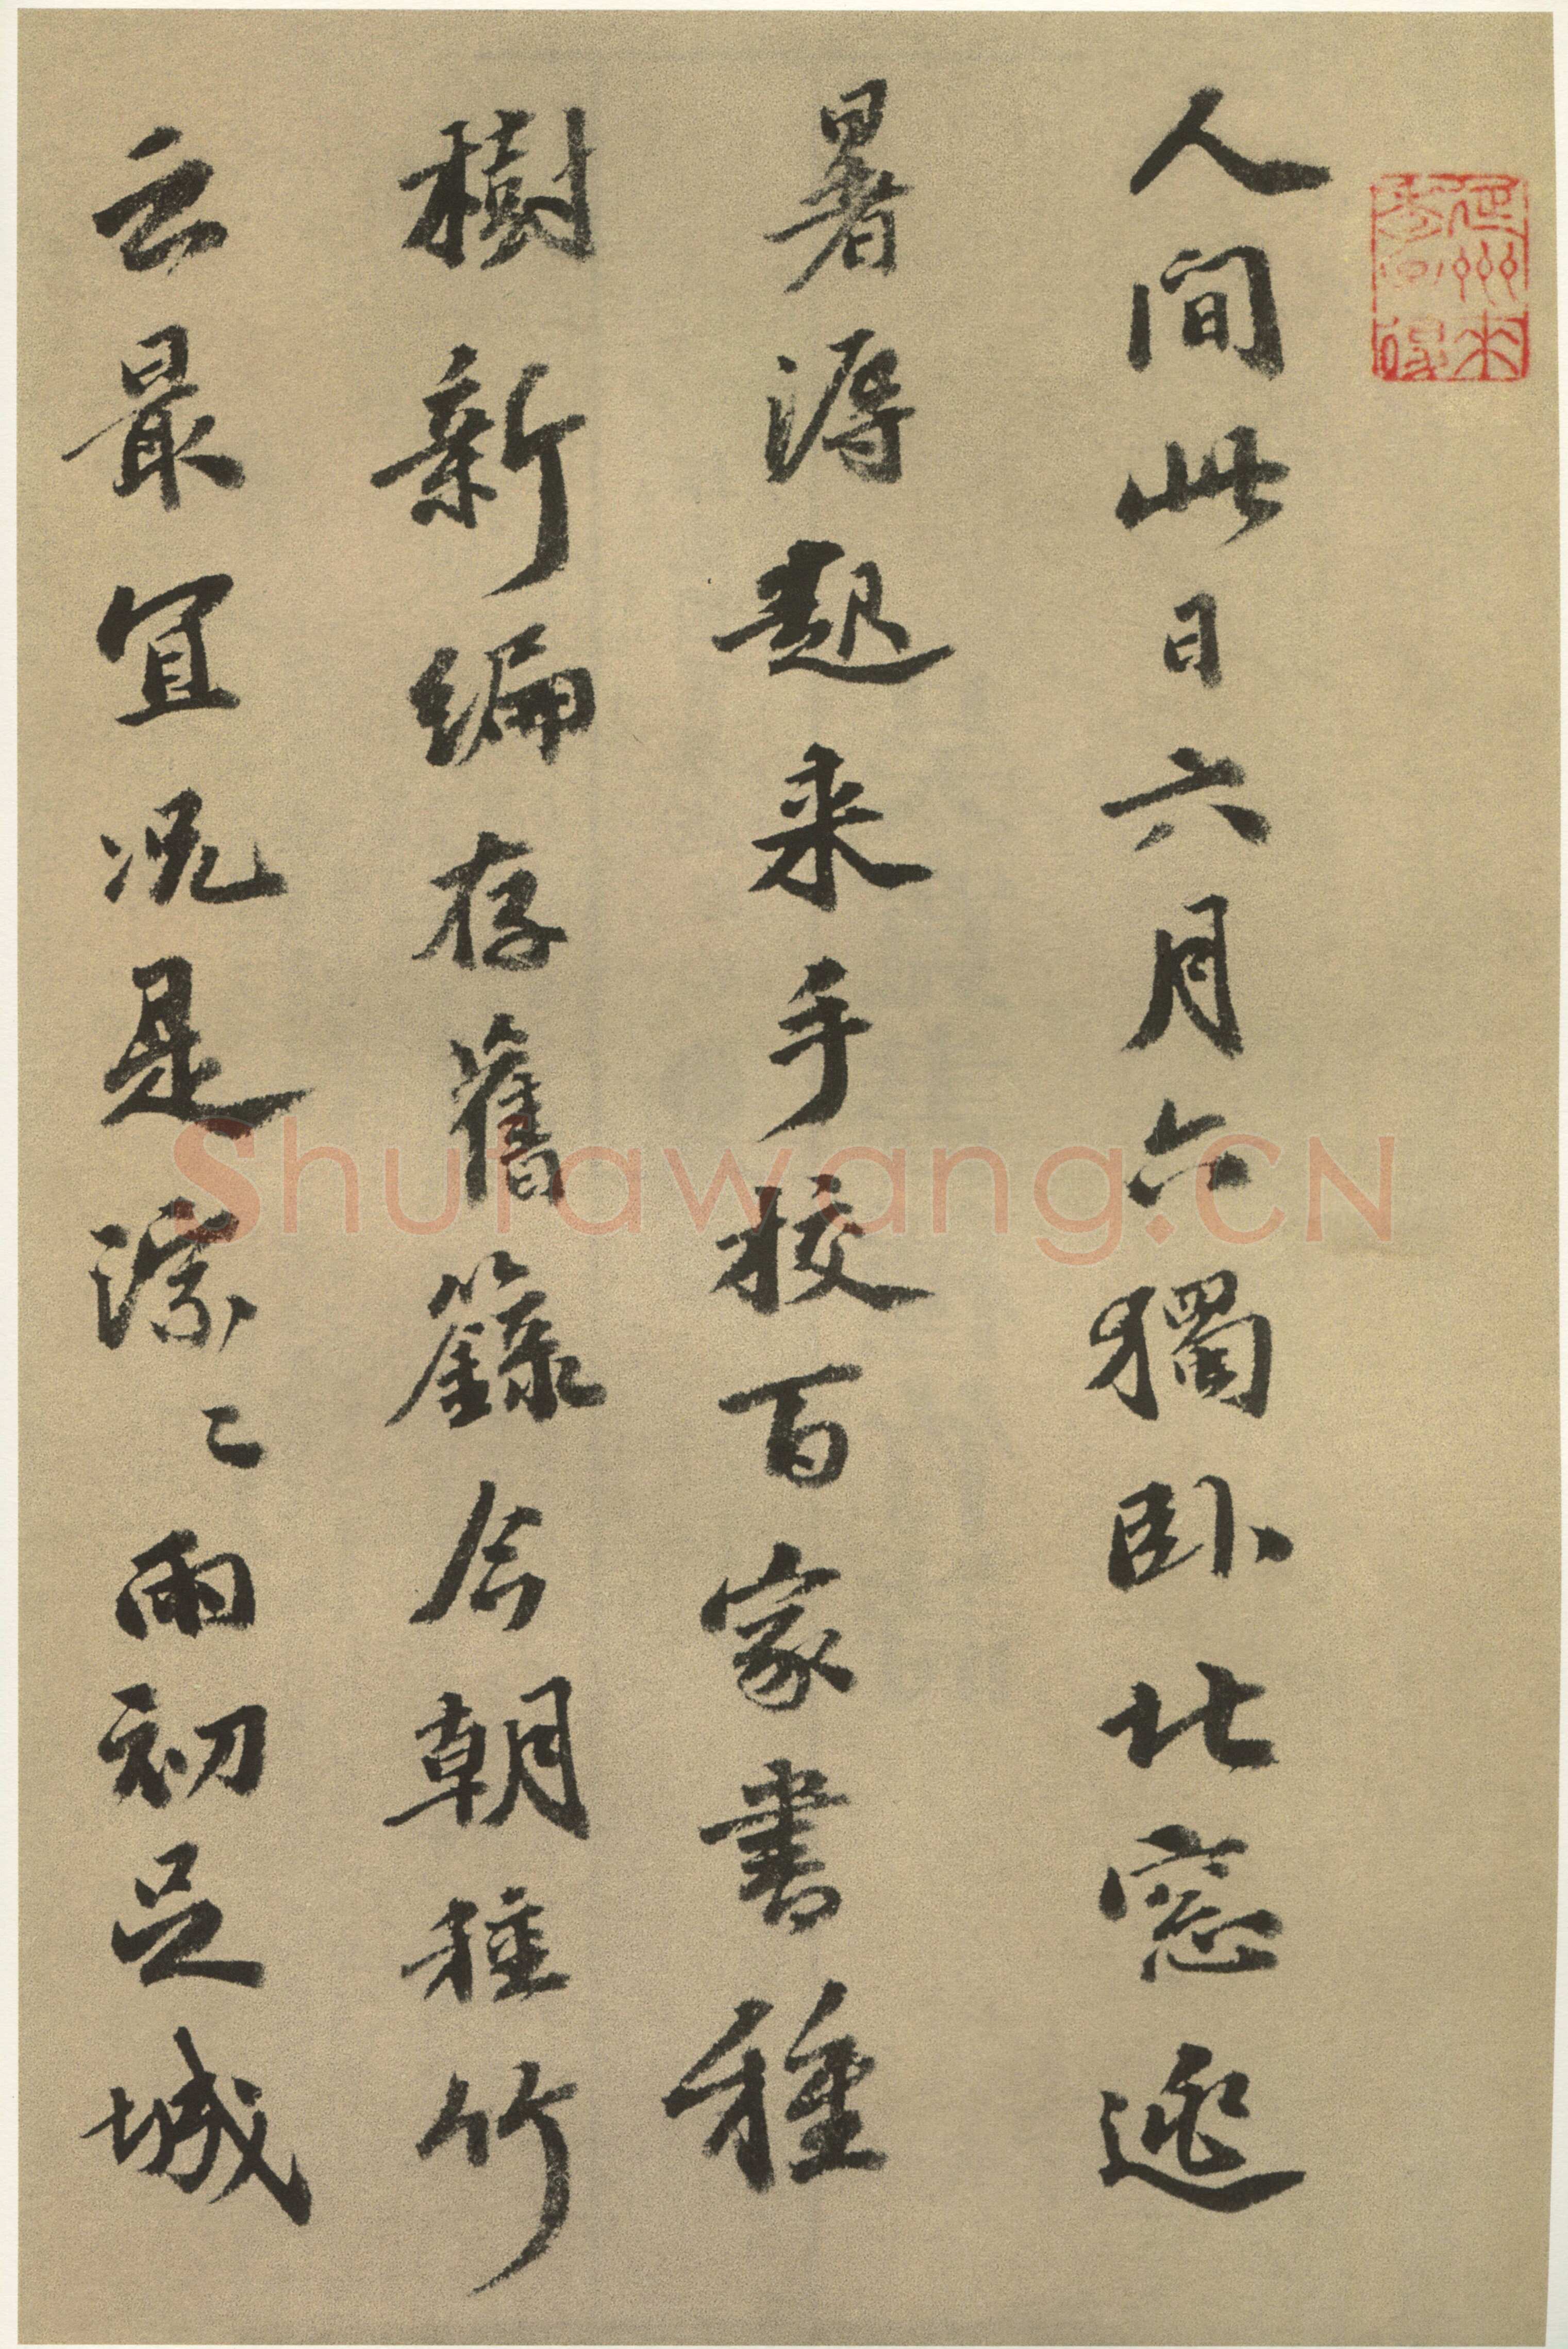 人間此日六月六獨卧北窓逃
暑溽起来手校百家書種
樹新編存舊籙今朝種竹
云最宜况是淙〻雨初足城
Shufawang.CN